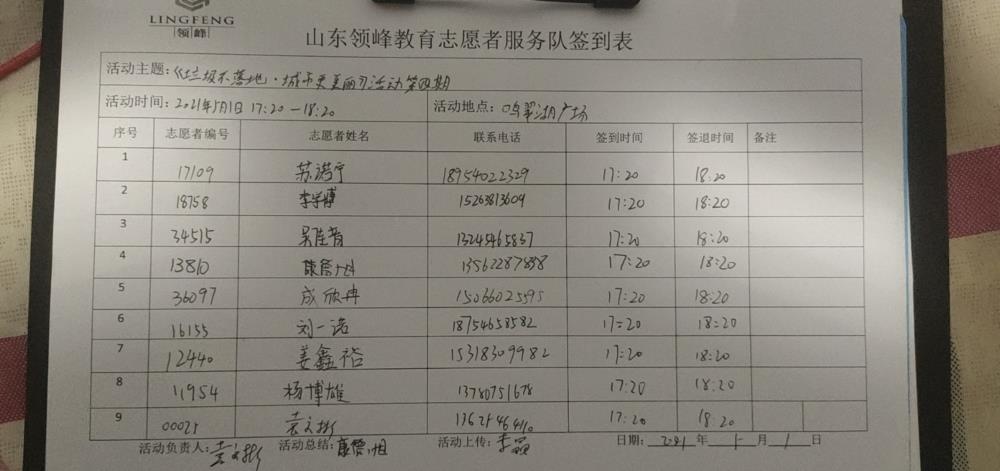 LINGFENG
领峰
山东领峰教育志愿者服务队签到表
活动主题:《垃圾不落地·城市更美丽》活动第四期
活动时间: 2021年5月1日 17:20—18:20 活动地点: 鸣翠湖广场
序号 志愿者编号 志愿者姓名 联系电话 签到时间 签退时间 备注
1 17109 苏诺宁 18954022329 17:20 18:20
2 18758 李学博 15263813609 17:20 18:20
3 34515 吴佳音 13245465837 17:20 18:20
4 13810 13562287898 17:20 18:20
5 36097 成欣冉 1506602 17:20 18:20
6 16155 刘一诺 18754658582 17:20 18:20
7 12440 姜鑫裕 15318309982 17:20 18:20
8 11954 杨博雄 13780751678 17:20 18:20
9 00025 袁文彬 17:20 18:20
活动负责人: 袁文彬 活动总结: 活动上传: 日期: 2021 年 5 月 1 日